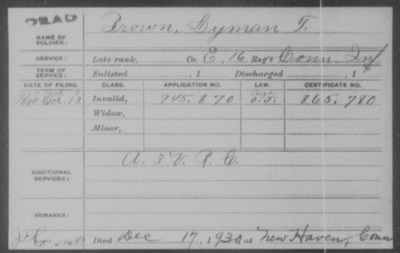 DEAD
NAME OF SOLDIER: Brown, Lyman T.
SERVICE: Late rank, Co. E, 16 Reg't Conn. Inf
TERM OF SERVICE: Enlisted , 1 Discharged , 1
DATE OF FILING. CLASS. APPLICATION NO. LAW. CERTIFICATE NO.
Invalid, 945.870 865.780
Widow,
Minor,
ADDITIONAL SERVICES: A. & V. R. C.
REMARKS:
Died Dec 17, 1930 at New Haven, Conn